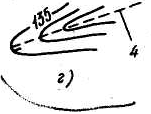 135
4
г)